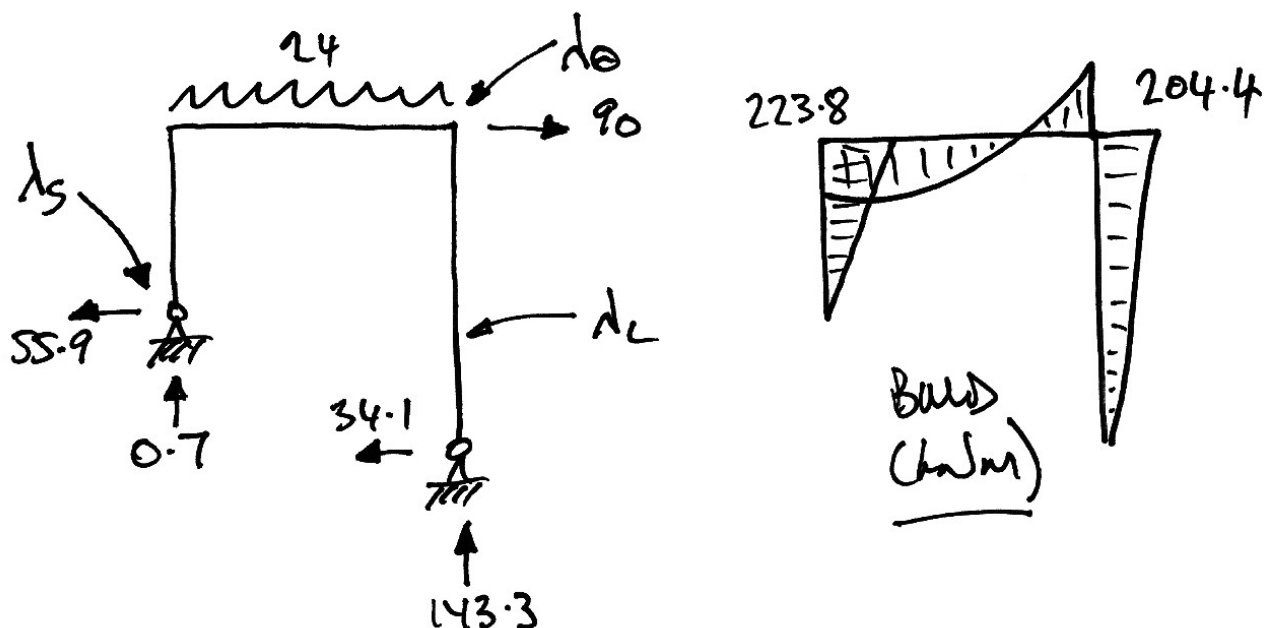 24
λθ
90
λS
55.9
0.7
λL
34.1
143.3
223.8
204.4
BMD
(kNm)